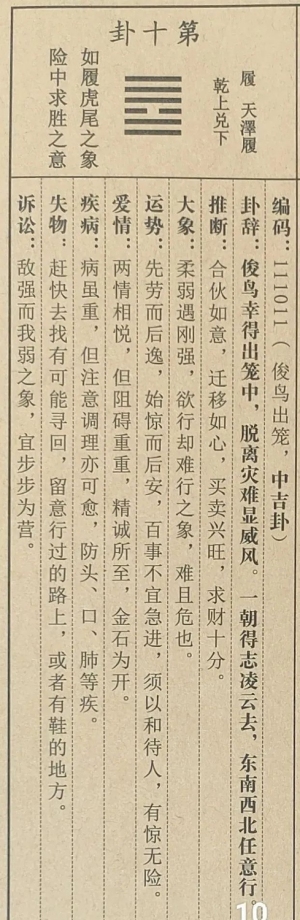 第十卦
履　天澤履
乾上兑下
如履虎尾之象
险中求胜之意
编码：111011（俊鸟出笼，中吉卦）
卦辞：俊鸟幸得出笼中，脱离灾难显威风。一朝得志凌云去，东南西北任意行。
推断：合伙如意，迁移如心，买卖兴旺，求财十分。
大象：柔弱遇刚强，欲行却难行之象，难且危也。
运势：先劳而后逸，始惊而后安，百事不宜急进，须以和待人，有惊无险。
爱情：两情相悦，但阻碍重重，精诚所至，金石为开。
疾病：病虽重，但注意调理亦可愈，防头、口、肺等疾。
失物：赶快去找有可能寻回，留意行过的路上，或者有鞋的地方。
诉讼：敌强而我弱之象，宜步步为营。
10